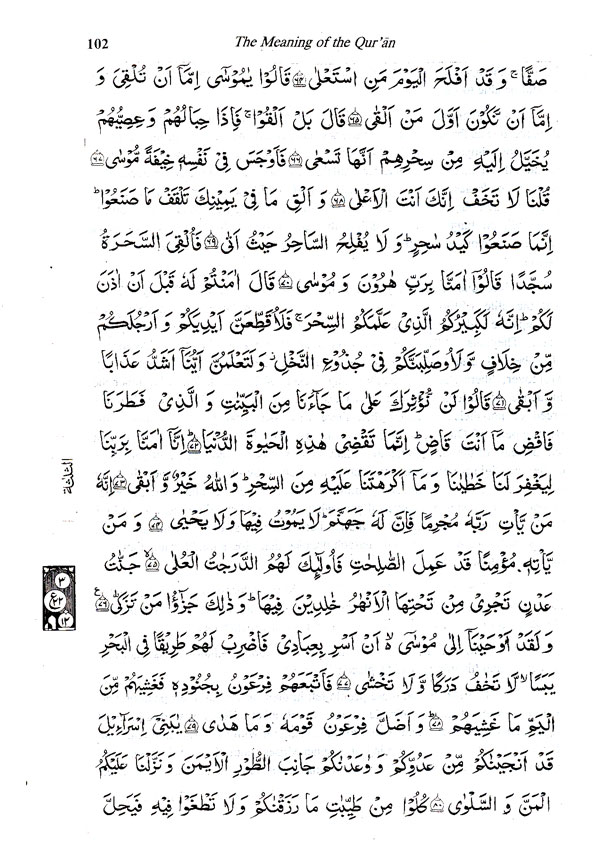 102 The Meaning of the Qur'ān
صَفًّا ۚ وَ قَدْ اَفْلَحَ الْيَوْمَ مَنِ اسْتَعْلٰى ﴿۶۴﴾ قَالُوْا يٰمُوْسٰٓى اِمَّاۤ اَنْ تُلْقِىَ وَ
اِمَّاۤ اَنْ نَّكُوْنَ اَوَّلَ مَنْ اَلْقٰى ﴿۶۵﴾ قَالَ بَلْ اَلْقُوْا ۚ فَاِذَا حِبَالُهُمْ وَ عِصِيُّهُمْ
يُخَيَّلُ اِلَيْهِ مِنْ سِحْرِهِمْ اَنَّهَا تَسْعٰى ﴿۶۶﴾ فَاَوْجَسَ فِىْ نَفْسِهٖ خِيْفَةً مُّوْسٰى ﴿۶۷﴾
قُلْنَا لَا تَخَفْ اِنَّكَ اَنْتَ الْاَعْلٰى ﴿۶۸﴾ وَ اَلْقِ مَا فِىْ يَمِيْنِكَ تَلْقَفْ مَا صَنَعُوْا ؕ
اِنَّمَا صَنَعُوْا كَيْدُ سٰحِرٍ ؕ وَ لَا يُفْلِحُ السَّاحِرُ حَيْثُ اَتٰى ﴿۶۹﴾ فَاُلْقِىَ السَّحَرَةُ
سُجَّدًا قَالُوْۤا اٰمَنَّا بِرَبِّ هٰرُوْنَ وَ مُوْسٰى ﴿۷۰﴾ قَالَ اٰمَنْتُمْ لَهٗ قَبْلَ اَنْ اٰذَنَ
لَكُمْ ؕ اِنَّهٗ لَكَبِيْرُكُمُ الَّذِىْ عَلَّمَكُمُ السِّحْرَ ۚ فَلَاُقَطِّعَنَّ اَيْدِيَكُمْ وَ اَرْجُلَكُمْ
مِّنْ خِلَافٍ وَّ لَاُوصَلِّبَنَّكُمْ فِىْ جُذُوْعِ النَّخْلِ ۫ وَ لَتَعْلَمُنَّ اَيُّنَاۤ اَشَدُّ عَذَابًا
وَّ اَبْقٰى ﴿۷۱﴾ قَالُوْا لَنْ نُّؤْثِرَكَ عَلٰى مَا جَآءَنَا مِنَ الْبَيِّنٰتِ وَ الَّذِىْ فَطَرَنَا
فَاقْضِ مَاۤ اَنْتَ قَاضٍ ؕ اِنَّمَا تَقْضِىْ هٰذِهِ الْحَيٰوةَ الدُّنْيَا ﴿۷۲﴾ اِنَّاۤ اٰمَنَّا بِرَبِّنَا
لِيَغْفِرَ لَنَا خَطٰيٰنَا وَ مَاۤ اَكْرَهْتَنَا عَلَيْهِ مِنَ السِّحْرِ ؕ وَ اللّٰهُ خَيْرٌ وَّ اَبْقٰى ﴿۷۳﴾ اِنَّهٗ
مَنْ يَّاْتِ رَبَّهٗ مُجْرِمًا فَاِنَّ لَهٗ جَهَنَّمَ ؕ لَا يَمُوْتُ فِيْهَا وَ لَا يَحْيٰى ﴿۷۴﴾ وَ مَنْ
يَّاْتِهٖ مُؤْمِنًا قَدْ عَمِلَ الصّٰلِحٰتِ فَاُولٰٓئِكَ لَهُمُ الدَّرَجٰتُ الْعُلٰى ﴿۷۵﴾ جَنّٰتُ
عَدْنٍ تَجْرِىْ مِنْ تَحْتِهَا الْاَنْهٰرُ خٰلِدِيْنَ فِيْهَا ؕ وَ ذٰلِكَ جَزٰٓؤُا مَنْ تَزَكّٰى ﴿۷۶﴾
وَ لَقَدْ اَوْحَيْنَاۤ اِلٰى مُوْسٰٓى ۙ اَنْ اَسْرِ بِعِبَادِىْ فَاضْرِبْ لَهُمْ طَرِيْقًا فِى الْبَحْرِ
يَبَسًا ۙ لَّا تَخٰفُ دَرَكًا وَّ لَا تَخْشٰى ﴿۷۷﴾ فَاَتْبَعَهُمْ فِرْعَوْنُ بِجُنُوْدِهٖ فَغَشِيَهُمْ مِّنَ
الْيَمِّ مَا غَشِيَهُمْ ﴿۷۸﴾ وَ اَضَلَّ فِرْعَوْنُ قَوْمَهٗ وَ مَا هَدٰى ﴿۷۹﴾ يٰبَنِىْۤ اِسْرَآءِيْلَ
قَدْ اَنْجَيْنٰكُمْ مِّنْ عَدُوِّكُمْ وَ وٰعَدْنٰكُمْ جَانِبَ الطُّوْرِ الْاَيْمَنَ وَ نَزَّلْنَا عَلَيْكُمُ
الْمَنَّ وَ السَّلْوٰى ﴿۸۰﴾ كُلُوْا مِنْ طَيِّبٰتِ مَا رَزَقْنٰكُمْ وَ لَا تَطْغَوْا فِيْهِ فَيَحِلَّ
الثلثة
۳
ع
۱۲